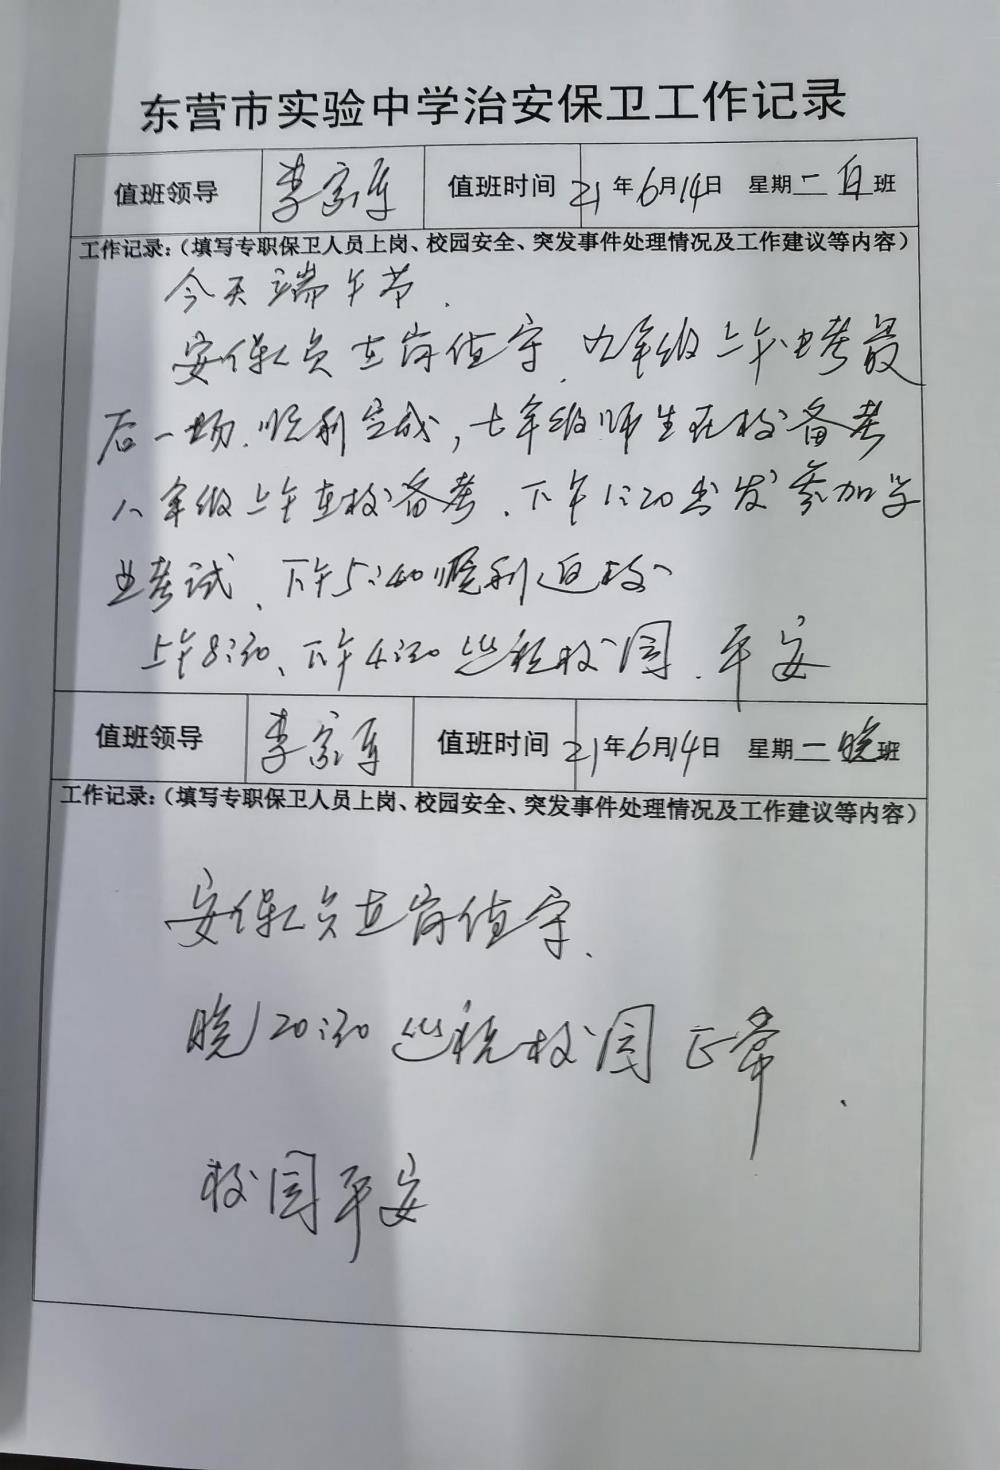 东营市实验中学治安保卫工作记录
值班领导 李家军 值班时间 21年6月14日 星期二白班
工作记录：（填写专职保卫人员上岗、校园安全、突发事件处理情况及工作建议等内容）
今天端午节.
安保人员在岗值守、九年级上午中考最
后一场、顺利完成，七年级师生在校备考
八年级上午在校备考、下午1:20出发参加学
业考试、下午5:40顺利返校
上午8:30、下午4:30巡视校园、平安
值班领导 李家军 值班时间 21年6月14日 星期二晚班
工作记录：（填写专职保卫人员上岗、校园安全、突发事件处理情况及工作建议等内容）
安保人员在岗值守、
晚20:30巡视校园正常.
校园平安